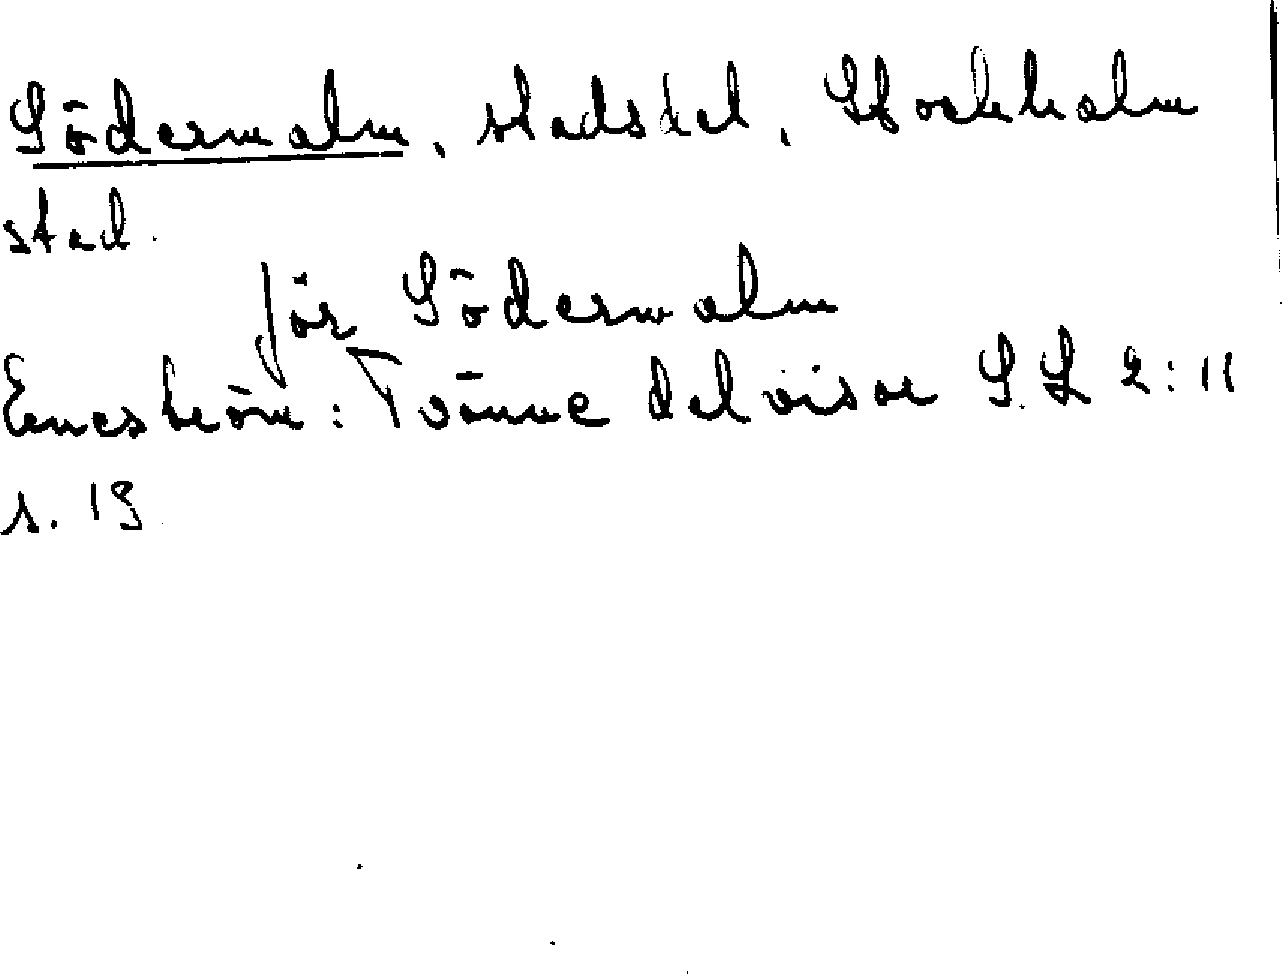 Södermalm, stadsdel, Stockholm
stad.
för Södermalm
Eneström: Tvänne delvisor S.L 2:11
s. 19